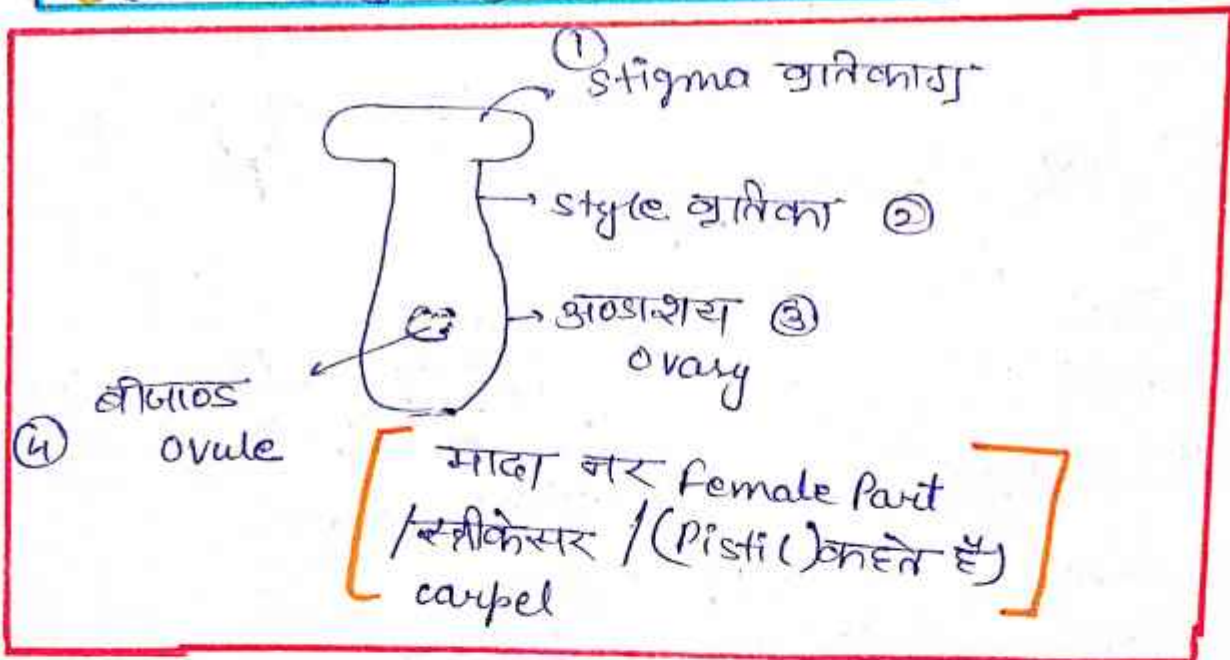 ①
Stigma वर्तिकाग्र
style वर्तिका ②
अण्डाशय ③
ovary
बीजाण्ड
④ ovule
मादा नर Female Part
/स्त्रीकेसर / (Pistil) कहते है)
carpel